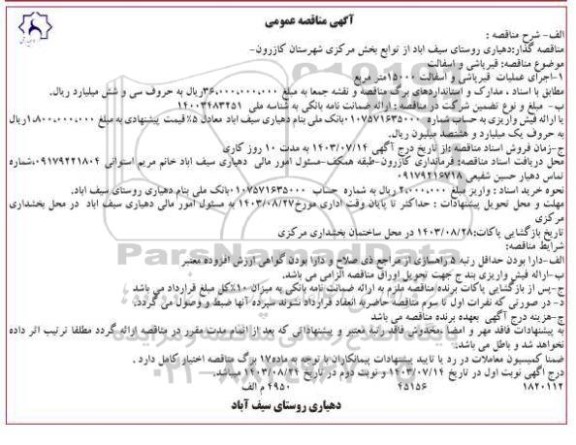 آگهی مناقصه عمومی
الف- شرح مناقصه :
مناقصه گذار:دهیاری روستای سیف اباد از توابع بخش مرکزی شهرستان کازرون-
موضوع مناقصه: قیرپاشی و اسفالت
۱-اجرای عملیات قیرپاشی و اسفالت ۱۵۰۰۰متر مربع
مطابق با اسناد ، مدارک و استانداردهای برگ مناقصه و نقشه جمعا به مبلغ ۳۶،۰۰۰،۰۰۰،۰۰۰ریال به حروف سی و شش میلیارد ریال.
ب- مبلغ و نوع تضمین شرکت در مناقصه : ارائه ضمانت نامه بانکی به شناسه ملی ۱۴۰۰۳۴۸۳۲۵۱
یا ارائه فیش واریزی به حساب شماره ۰۱۰۷۵۷۱۶۳۵۰۰۰بانک ملی بنام دهیاری سیف اباد معادل ۵٪ قیمت پیشنهادی به مبلغ ۱،۸۰۰،۰۰۰،۰۰۰ریال
به حروف یک میلیارد و هشتصد میلیون ریال.
ج-زمان فروش اسناد مناقصه :از تاریخ درج آگهی ۱۴۰۳/۰۷/۱۴ به مدت ۱۰ روز کاری
محل دریافت اسناد مناقصه: فرمانداری کازرون-طبقه همکف-مسئول امور مالی دهیاری سیف اباد خانم مریم استوانی ۰۹۱۷۹۲۲۱۸۰۴،شماره
تماس دهیار حسین شفیعی ۰۹۱۷۹۲۱۶۷۱۸
نحوه خرید اسناد : واریز مبلغ ۲،۰۰۰،۰۰۰ ریال به شماره حساب ۰۱۰۷۵۷۱۶۳۵۰۰۰بانک ملی بنام دهیاری روستای سیف آباد.
مهلت و محل تحویل پیشنهادات : حداکثر تا پایان وقت اداری مورخ۱۴۰۳/۰۸/۲۷ به مسئول امور مالی دهیاری سیف اباد در محل بخشداری
مرکزی
تاریخ بازگشایی پاکات:۱۴۰۳/۰۸/۲۸ در محل ساختمان بخشداری مرکزی
شرایط مناقصه:
الف-دارا بودن حداقل رتبه ۵ راهسازی از مراجع ذی صلاح و دارا بودن گواهی ارزش افزوده معتبر
ب-ارائه فیش واریزی بند ج جهت تحویل اوراق مناقصه الزامی می باشد.
ج-پس از بازگشایی پاکات برنده مناقصه ملزم به ارائه ضمانت نامه بانکی به میزان ۱۰٪کل مبلغ قرارداد می باشد
د- در صورتی که نفرات اول تا سوم مناقصه حاضربه انعقاد قرارداد نشوند سپرده آنها ضبط و وصول می گردد.
ح-هزینه درج آگهی بعهده برنده مناقصه می باشد
به پیشنهادات فاقد مهر و امضا ،مخدوش فاقد رتبه معتبر و پیشنهاداتی که بعد از اتمام مدت مقرر در مناقصه ارائه گردد مطلقا ترتیب اثر داده
نخواهد شد و باطل می باشد.
ضمنا کمیسیون معاملات در رد یا تایید پیشنهادات پیمانکاران با توجه به ماده۱۷ بزرگ مناقصه اختیار کامل دارد .
درج آگهی نوبت اول در تاریخ ۱۴۰۳/۰۷/۱۴ و نوبت دوم در تاریخ ۱۴۰۳/۰۸/۲۴ میباشد.
۱۸۲۰۱۱۲ ۴۵۱۵۶ ۴۹۵۰ م الف
دهیاری روستای سیف آباد
ParsNamadData